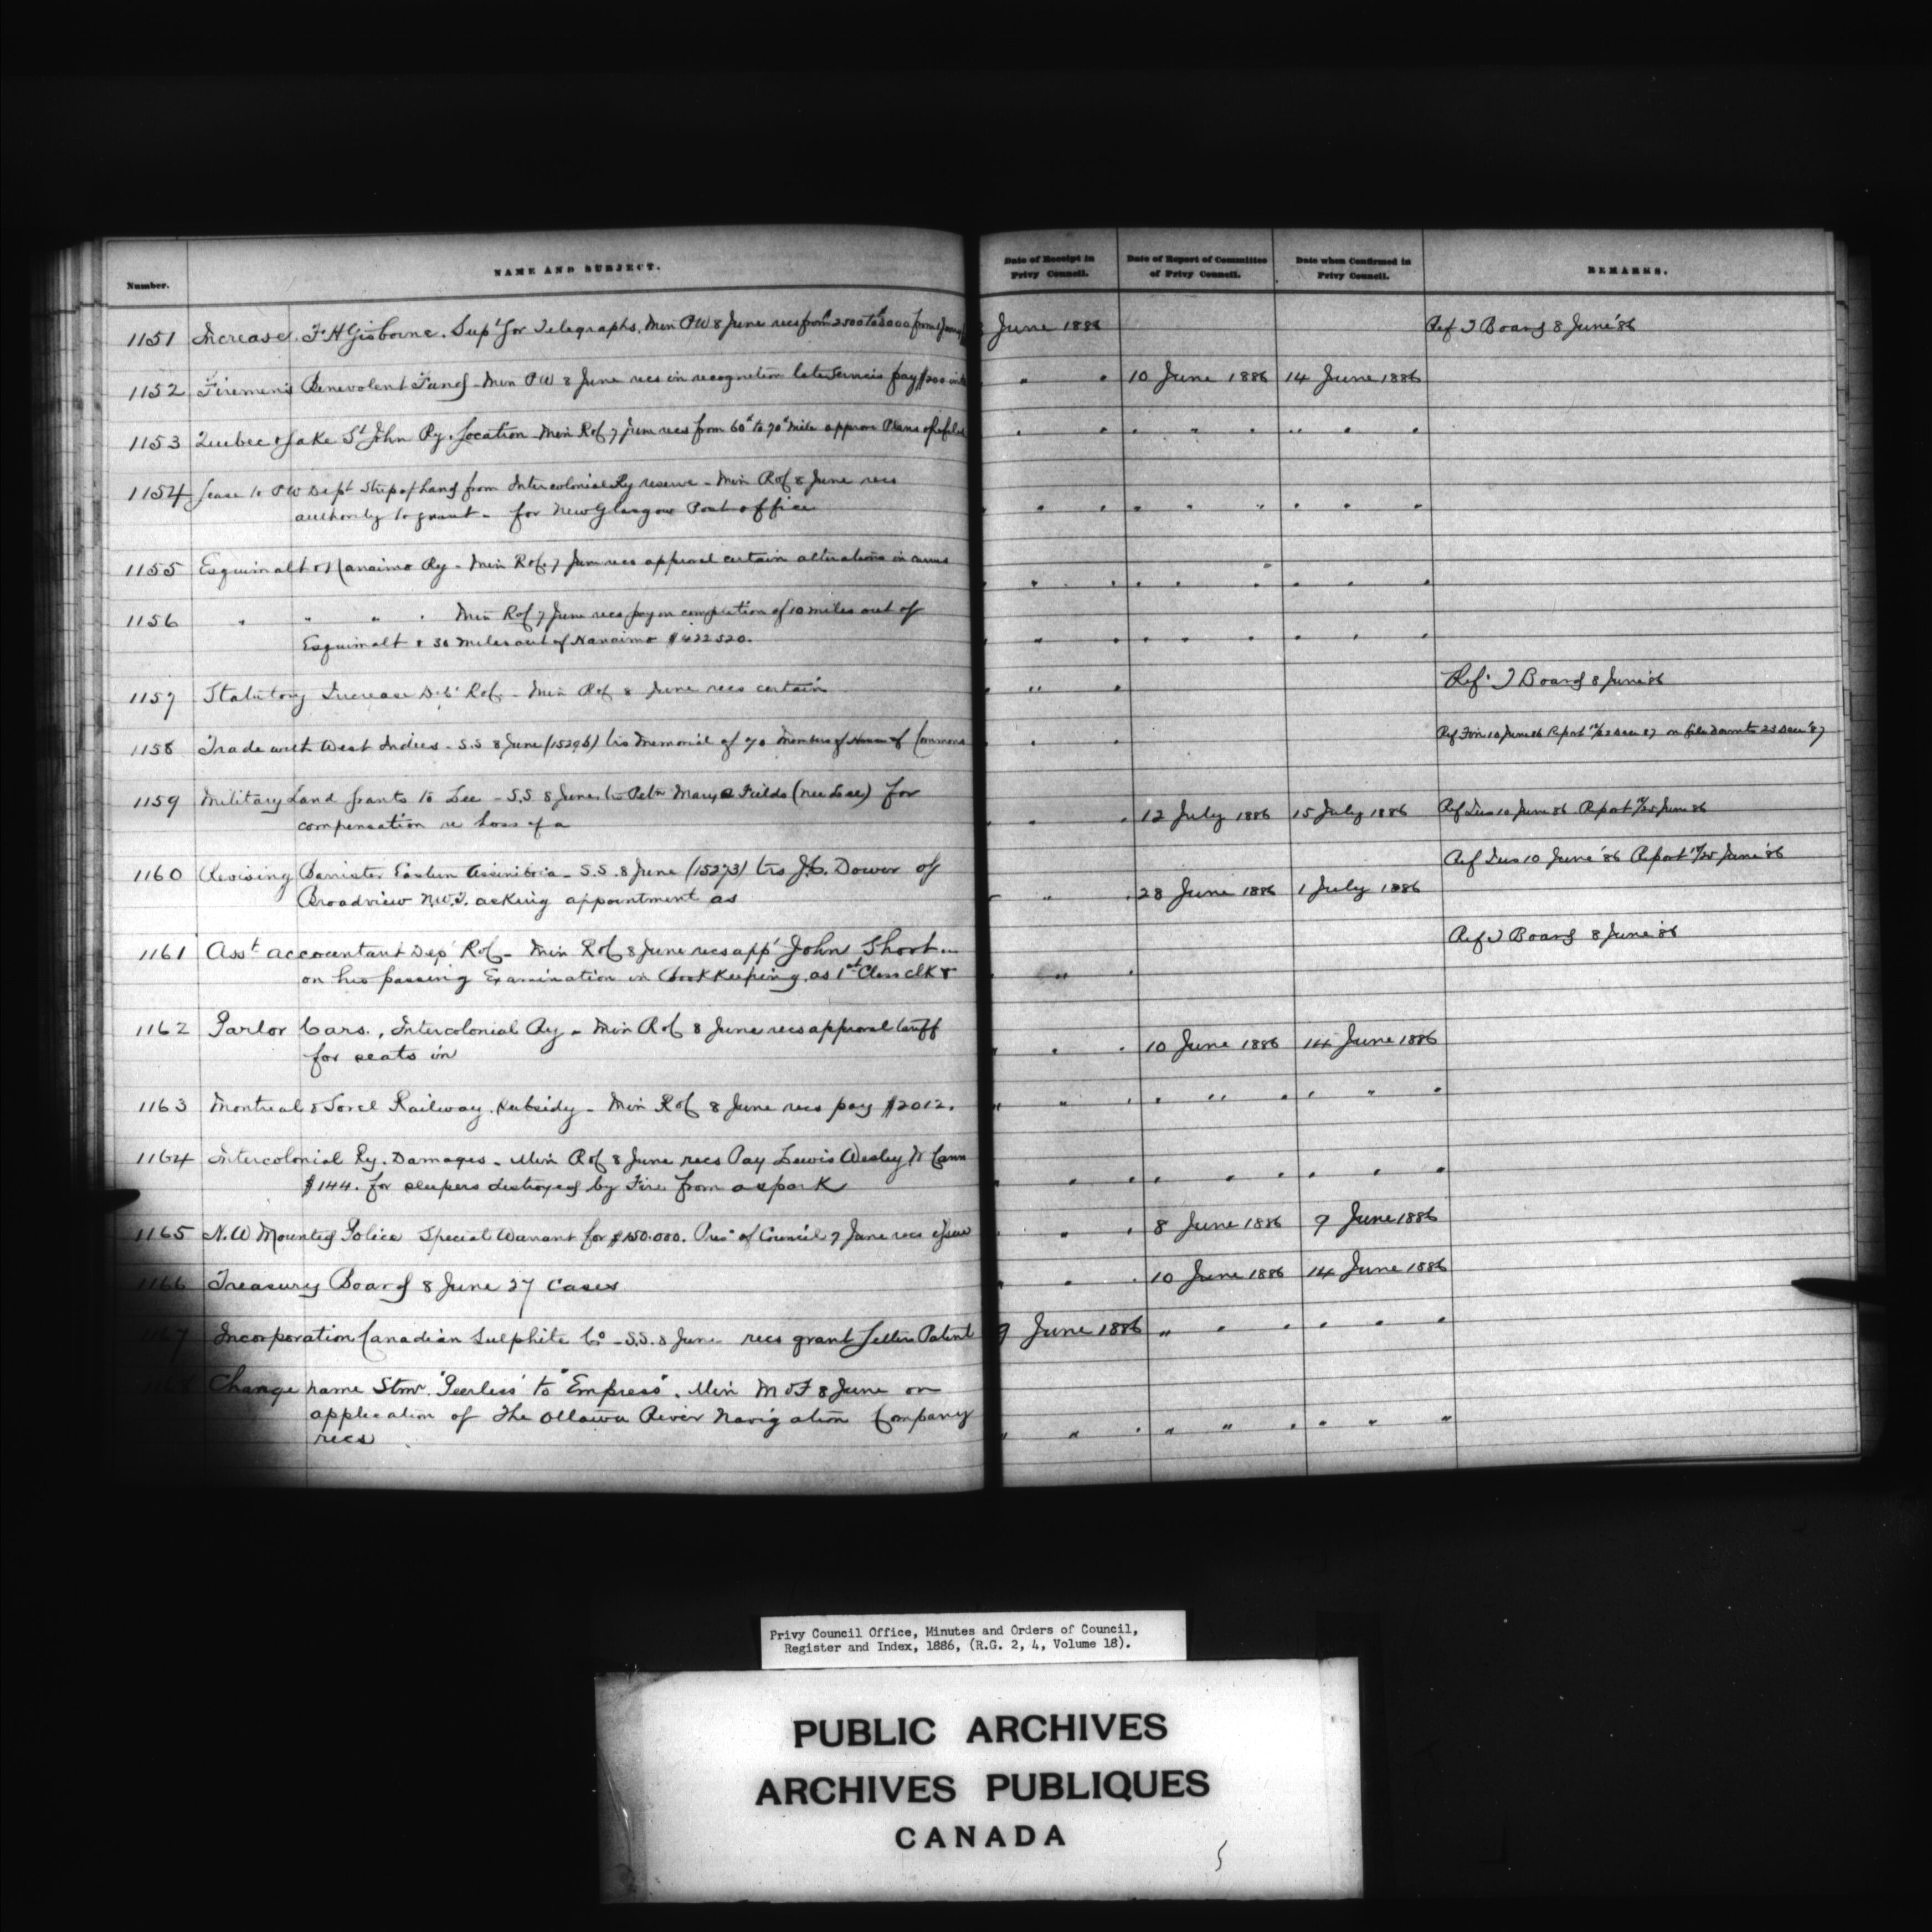 Number.
NAME AND SUBJECT.
Date of Receipt in Privy Council.
Date of Report of Committee of Privy Council.
Date when Confirmed in Privy Council.
REMARKS.
1151 Increase. F H Gisborne. Supt Gov Telegraphs. Min PW 8 June recs from 2500 to 3000 from June 1886 Ref T Board 8 June '86
1152 Firemen's Benevolent Fund - Min PW 8 June recs in recognition late services pay $200 " " 10 June 1886 14 June 1886
1153 Quebec & Lake St John Ry. Location Min Rof 7 June recs from 60th to 70th Mile approve Plans " " " " " " " "
1154 Lease to PW Dept Strip of Land from Intercolonial Ry reserve - Min Rof 8 June recs
authority to grant - for New Glasgow Post office " " " " " " " "
1155 Esquimalt & Nanaimo Ry - Min Rof 7 June recs approval certain alterations in " " " " " " " "
1156 " " " " Min Rof 7 June recs pay on completion of 10 miles out of
Esquimalt & 30 miles out of Nanaimo $422520. " " " " " " " "
1157 Statutory Increase Dept Rof - Min Rof 8 June recs certain " " " Ref. T Board 8 June '86
1158 Trade with West Indies - S.S 8 June (15296) trs Memorial of 70 Members of House of Commons " " Ref Fin 10 June 86 Report on file 23 Decr '87
1159 Military Land Grants to Lee - S.S 8 June trs Petn Mary Fields (nee Lee) for
compensation re loss of a " " 12 July 1886 15 July 1886 Ref Int 10 June 86 Report 25 June 86
1160 Revising Barrister Eastern Assiniboia - S.S. 8 June (15273) trs J.C. Dower of
Broadview N.W.T. asking appointment as " " 28 June 1886 1 July 1886 Ref Jus 10 June '86 Report June '86
1161 Asst accountant Dept Rof - Min Rof 8 June recs appt John Short
on his passing Examination in Book Keeping, as 1st Class clk & " " " Ref T Board 8 June 86
1162 Parlor Cars., Intercolonial Ry - Min Rof 8 June recs approval tariff
for seats in " " " 10 June 1886 14 June 1886
1163 Montreal & Sorel Railway. Subsidy - Min Rof 8 June recs pay $2012. " " " " " " " " "
1164 Intercolonial Ry. Damages - Min Rof 8 June recs Pay Lewis Wesley McCann
$144. for sleepers destroyed by Fire from a spark " " " " " " " " "
1165 N.W Mounted Police Special Warrant for $150.000. Pres of Council 7 June recs issue " " " 8 June 1886 9 June 1886
1166 Treasury Board 8 June 27 Cases " " " 10 June 1886 14 June 1886
1167 Incorporation Canadian Sulphite Co - S.S. 8 June recs grant Letters Patent 9 June 1886 " " " " " "
1168 Change name Stmr. "Peerless" to "Empress". Min M & F 8 June on
application of The Ottawa River Navigation Company
recs " " " " " " " " "
Privy Council Office, Minutes and Orders of Council,
Register and Index, 1886, (R.G. 2, 4, Volume 18).
PUBLIC ARCHIVES
ARCHIVES PUBLIQUES
CANADA